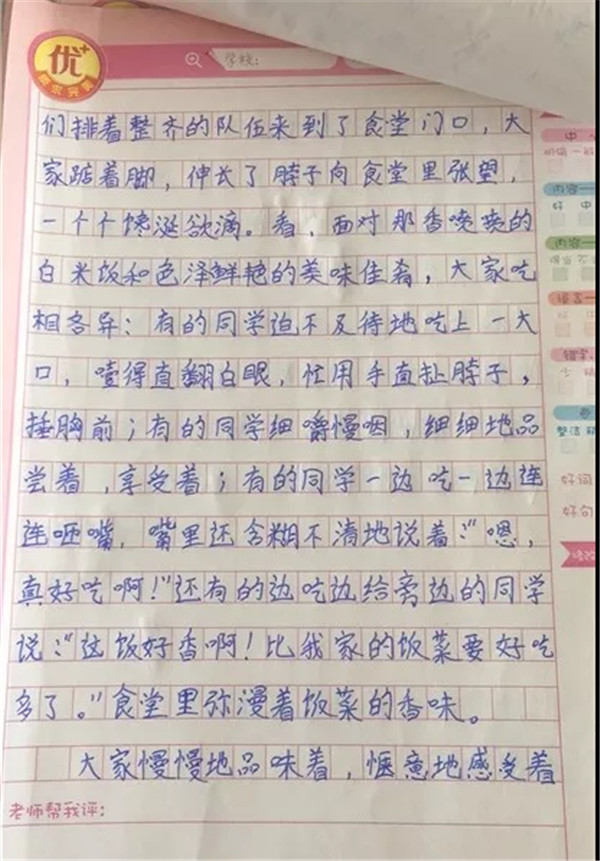 优+
学校:
们排着整齐的队伍来到了食堂门口，大
家踮着脚，伸长了脖子向食堂里张望，
一个个馋涎欲滴。看，面对那香喷喷的
白米饭和色泽鲜艳的美味佳肴，大家吃
相各异：有的同学迫不及待地吃上一大
口，噎得直翻白眼，忙用手直扯脖子，
捶胸前；有的同学细嚼慢咽，细细地品
尝着，享受着；有的同学一边吃一边连
连咂嘴，嘴里还含糊不清地说着：“嗯，
真好吃啊！”还有的边吃边给旁边的同学
说：“这饭好香啊！比我家的饭菜要好吃
多了。”食堂里弥漫着饭菜的香味。
大家慢慢地品味着，惬意地感受着
老师帮我评：
中
内容一
好 中
内容一
语言一
错字
整洁
好词
好句